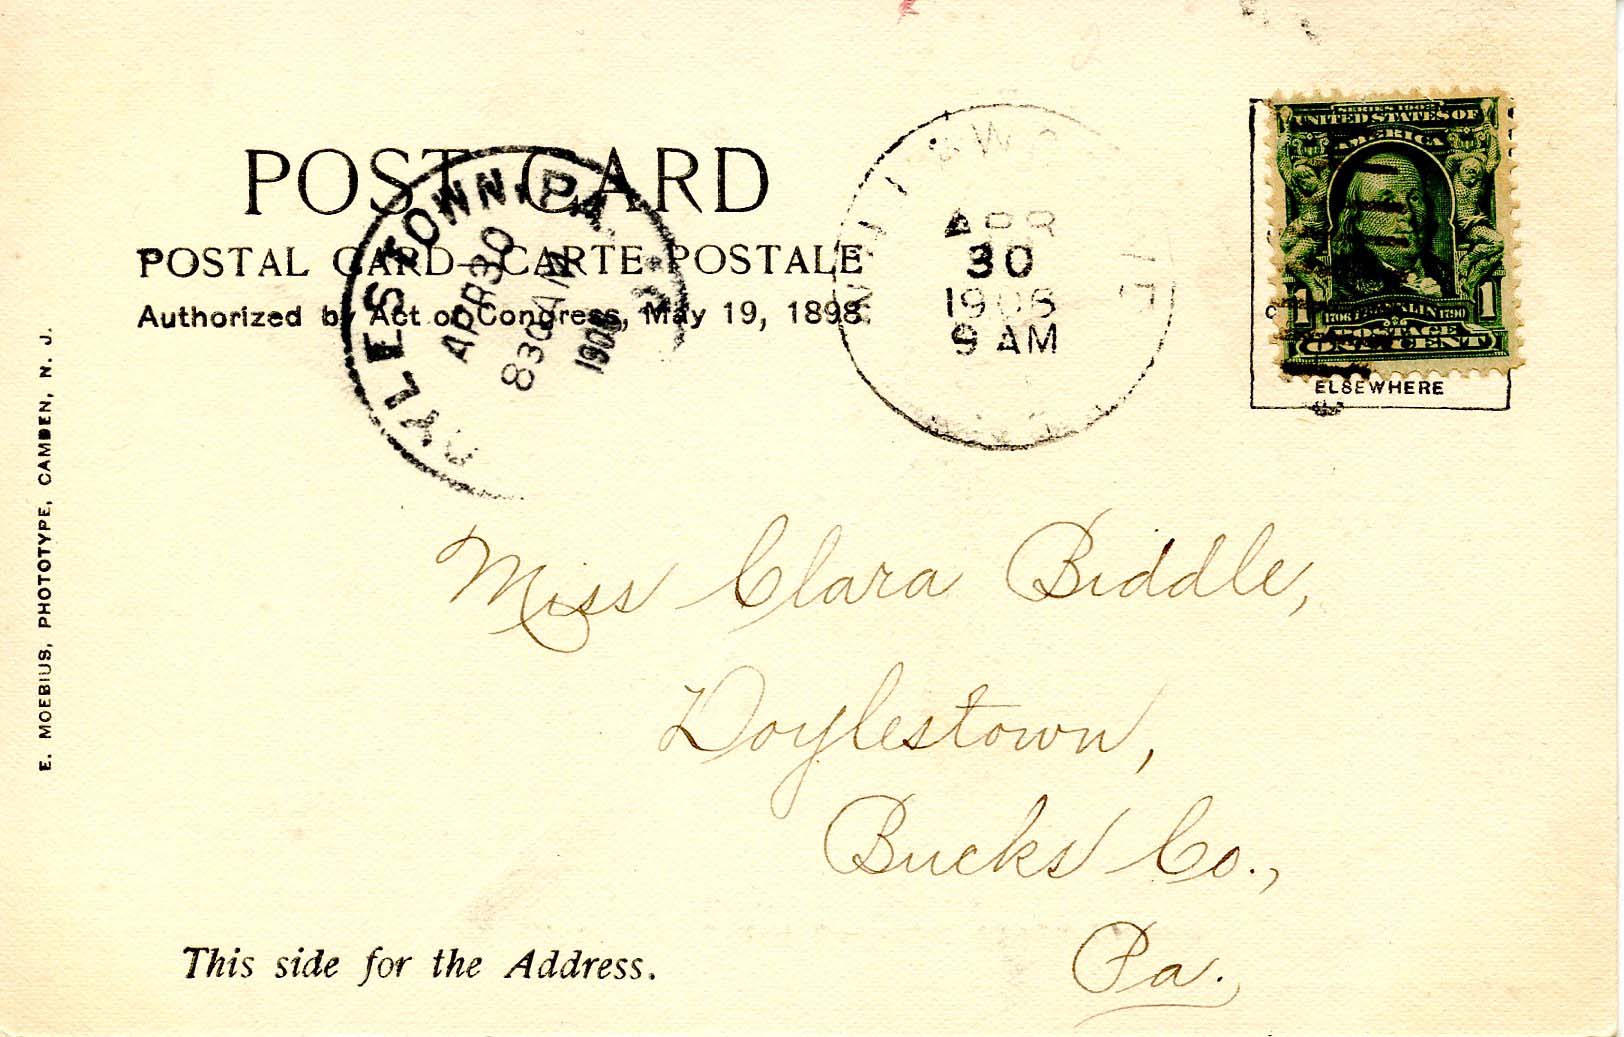 POST CARD
POSTAL CARD—CARTE POSTALE
Authorized by Act of Congress, May 19, 1898.
DOYLESTOWN, PA.
APR 30
830 AM
1906
APR
30
1906
9 AM
SERIES 1902
UNITED STATES OF
AMERICA
1 1
1706 FRANKLIN 1790
POSTAGE
ONE CENT
ELSEWHERE
E. MOEBIUS, PHOTOTYPE, CAMDEN, N. J.
Miss Clara Biddle,
Doylestown,
Bucks Co.,
Pa.
This side for the Address.